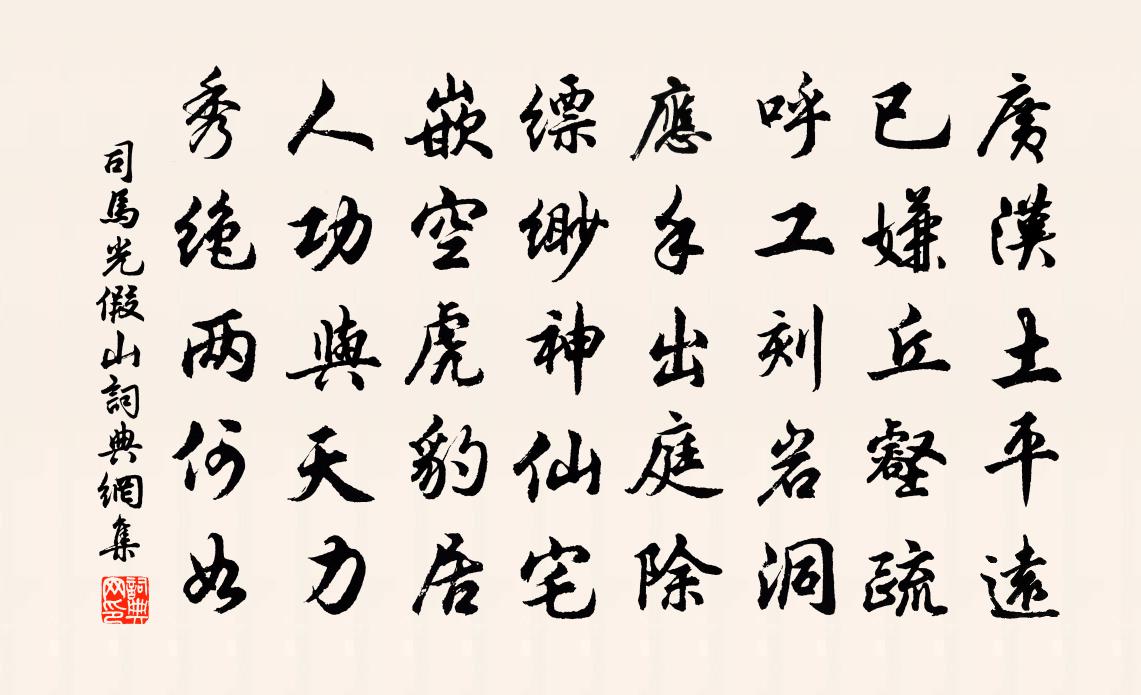 廣漢土平遠
已嫌丘壑疏
呼工刻岩洞
應手出庭除
縹緲神仙宅
嵌空虎豹居
人功與天力
秀绝两何如
司馬光假山詞典網集
詞典网印